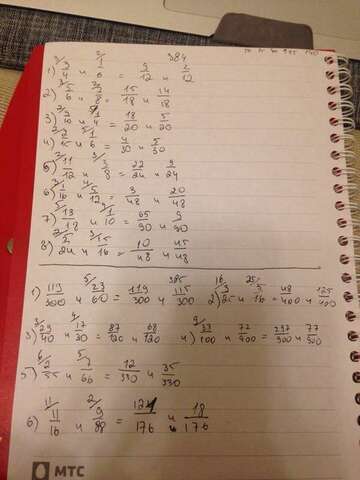 384
1) 3/4 и 1/6 = 9/12 и 2/12
2) 5/6 и = 15/18 и 14/18
3) = 18/20 и 5/20
4) 2/15 и 1/6 = 4/30 и 5/30
5) 11/12 и 3/8 = 22/24 и 9/24
6) 1/16 и 5/12 = 3/48 и 20/48
7) 13/18 и 1/10 = 65/90 и 9/90
8) 5/24 и 15/16 = 10/48 и 45/48
385
1) 119/300 и 23/60 = 119/300 и 115/300 2) 3/25 и 5/16 = 48/400 и 125/400
3) 29/40 и 17/30 = 87/120 и 68/120 4) 33/100 и = 297/900 и 77/900
5) 2/55 и 7/66 = 12/330 и 35/330
6) 11/16 и 9/88 = 121/176 и 18/176
МТС